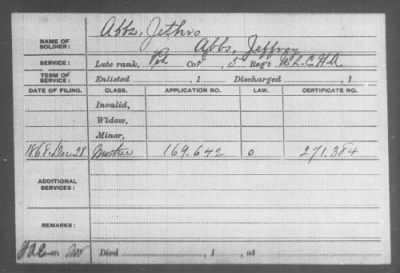 Abbs, Jethro
NAME OF SOLDIER: Abbs, Jeffroy
SERVICE: Late rank, Pvt Co. , 5 Reg't U.S.C.H.A
TERM OF SERVICE: Enlisted , 1 Discharged , 1
DATE OF FILING. CLASS. APPLICATION NO. LAW. CERTIFICATE NO.
Invalid,
Widow,
Minor,
1868. Dec 28 Mother 169.642 0 271.384
ADDITIONAL SERVICES:
REMARKS:
Died , 1 , at